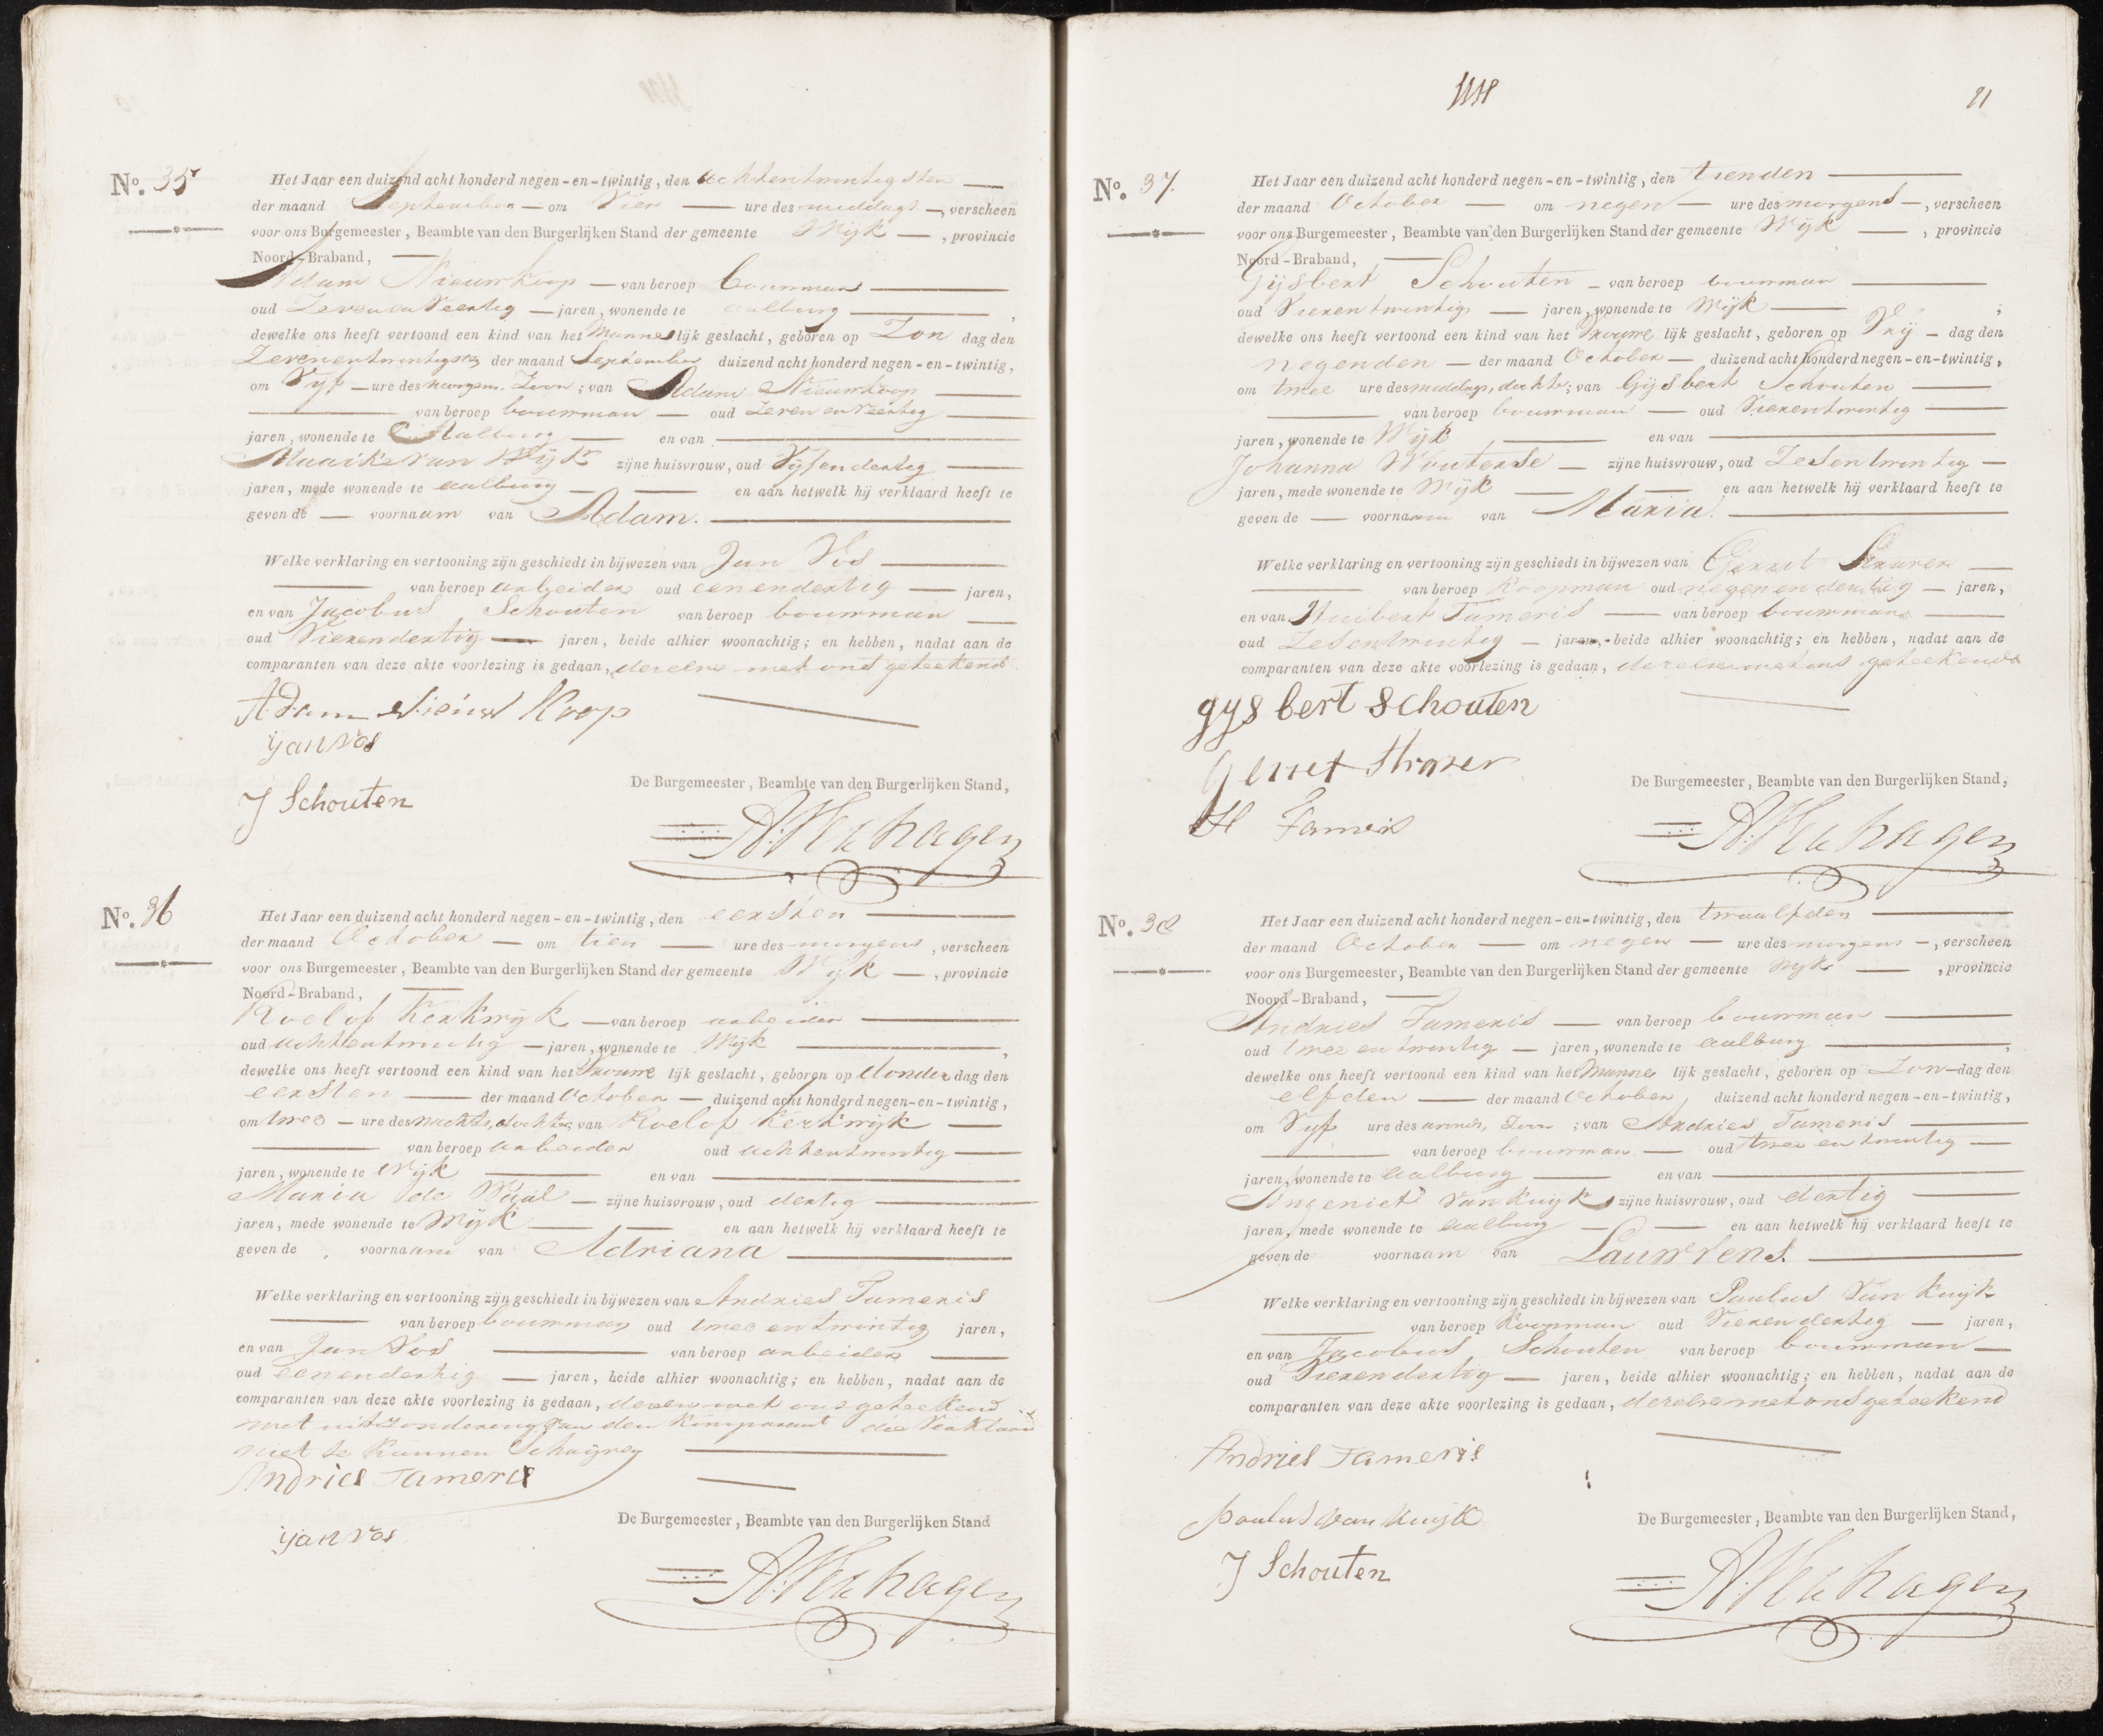 No. 35
Het Jaar een duizend acht honderd negen-en-twintig, den achtentwintigsten
der maand September om Vier ure des middags, verscheen
voor ons Burgemeester, Beambte van den Burgerlijken Stand der gemeente Wijk, provincie
Noord-Braband,
Adam Nieuwkoop van beroep bouwman
oud Zeven en Veertig jaren, wonende te aalburg,
dewelke ons heeft vertoond een kind van het Manne lijk geslacht, geboren op Zon dag den
Zevenentwintigsten der maand September duizend acht honderd negen-en-twintig,
om Vyf ure des morgens, Zoon; van Adam Nieuwkoop
van beroep bouwman oud Zeven en Veertig
jaren, wonende te Aalburg en van
Maaike van Wijk zijne huisvrouw, oud Vijfendertig
jaren, mede wonende te aalburg en aan hetwelk hij verklaard heeft te
geven de voornaam van Adam.
Welke verklaring en vertooning zijn geschiedt in bijwezen van Jan Vos
van beroep arbeider oud eenendertig jaren,
en van Jacobus Schouten van beroep bouwman
oud Vierendertig jaren, beide alhier woonachtig; en hebben, nadat aan de
comparanten van deze akte voorlezing is gedaan, dezelve met ons geteekend
Adam Nieuw Koop
yan vos
J Schouten
De Burgemeester, Beambte van den Burgerlijken Stand,
A. Verhagen
No. 36
Het Jaar een duizend acht honderd negen-en-twintig, den eersten
der maand October om tien ure des morgens, verscheen
voor ons Burgemeester, Beambte van den Burgerlijken Stand der gemeente Wijk, provincie
Noord-Braband,
Roelof Kerkwijk van beroep arbeider
oud achtentwintig jaren, wonende te Wijk,
dewelke ons heeft vertoond een kind van het Vrouwe lijk geslacht, geboren op donder dag den
eersten der maand October duizend acht honderd negen-en-twintig,
om twee ure des nachts, dochter, van Roelof Kerkwijk
van beroep arbeider oud achtentwintig
jaren, wonende te Wijk en van
Maria de Waal zijne huisvrouw, oud dertig
jaren, mede wonende te Wijk en aan hetwelk hij verklaard heeft te
geven de voornaam van Adriana
Welke verklaring en vertooning zijn geschiedt in bijwezen van Andries Tameris
van beroep bouwman oud twee en twintig jaren,
en van Jan Vos van beroep arbeider
oud eenendertig jaren, beide alhier woonachtig; en hebben, nadat aan de
comparanten van deze akte voorlezing is gedaan, dezen met ons geteekend
met uitzondering van den Komparant die Verklaard
niet te kunnen Schrijven
Andries Tameris
yan vos
De Burgemeester, Beambte van den Burgerlijken Stand
A. Verhagen
21
No. 37.
Het Jaar een duizend acht honderd negen-en-twintig, den tienden
der maand October om negen ure des morgens, verscheen
voor ons Burgemeester, Beambte van den Burgerlijken Stand der gemeente Wijk, provincie
Noord-Braband,
Gijsbert Schouten van beroep bouwman
oud Vierentwintig jaren, wonende te Wijk,
dewelke ons heeft vertoond een kind van het Vrouwe lijk geslacht, geboren op Vrij dag den
negenden der maand October duizend acht honderd negen-en-twintig,
om twee ure des middags, dochter; van Gijsbert Schouten
van beroep bouwman oud Vierentwintig
jaren, wonende te Wijk en van
Johanna Wouterse zijne huisvrouw, oud Zesentwintig
jaren, mede wonende te Wijk en aan hetwelk hij verklaard heeft te
geven de voornaam van Maria.
Welke verklaring en vertooning zijn geschiedt in bijwezen van Gerrit
van beroep Koopman oud negenendertig jaren,
en van Huibert Tameris van beroep bouwman
oud Zesentwintig jaren, beide alhier woonachtig; en hebben, nadat aan de
comparanten van deze akte voorlezing is gedaan, dezelve met ons geteekend
gysbert Schouten
gerret
H Tameris
De Burgemeester, Beambte van den Burgerlijken Stand,
A. Verhagen
No. 38
Het Jaar een duizend acht honderd negen-en-twintig, den twaalfden
der maand October om negen ure des morgens, verscheen
voor ons Burgemeester, Beambte van den Burgerlijken Stand der gemeente Wyk, provincie
Noord-Braband,
Andries Tameris van beroep bouwman
oud twee en twintig jaren, wonende te aalburg,
dewelke ons heeft vertoond een kind van het Manne lijk geslacht, geboren op Zon dag den
elfden der maand October duizend acht honderd negen-en-twintig,
om Vyf ure des avonds, Zoon; van Andries Tameris
van beroep bouwman oud twee en twintig
jaren, wonende te aalburg en van
Ingeniet van Kuijk zijne huisvrouw, oud dertig
jaren, mede wonende te aalburg en aan hetwelk hij verklaard heeft te
geven de voornaam van Lauwrens.
Welke verklaring en vertooning zijn geschiedt in bijwezen van Paulus Van Kuijk
van beroep Koopman oud Vierendertig jaren,
en van Jacobus Schouten van beroep bouwman
oud Vierendertig jaren, beide alhier woonachtig; en hebben, nadat aan de
comparanten van deze akte voorlezing is gedaan, dezelve met ons geteekend
Andries Tameris
paulus van kuijk
J Schouten
De Burgemeester, Beambte van den Burgerlijken Stand,
A. Verhagen